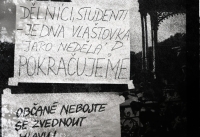 DĚLNÍCI, STUDENTI
-JEDNA VLAŠTOVKA
JARO NEDĚLÁ"
POKRAČUJEME
OBČANÉ NEBOJTE
SE ZVEDNOUT
HLAVU!